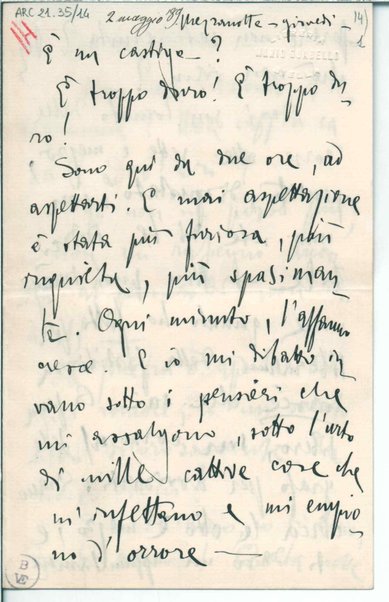 ARC 21.35/14
14
2 maggio 189
Mezzanotte - giovedì -
14
1
È un castigo?
È troppo duro! È troppo du-
ro!
Sono qui da due ore, ad
aspettarti. E mai aspettazione
è stata più furiosa, più
inquieta, più spasiman
te. Ogni minuto, l'affanno
cresce. E io mi dibatto in
vano sotto i pensieri che
mi assalgono, sotto l'urto
di mille cattive cose che
m'infettano e mi empio
no d'orrore —
B
VE